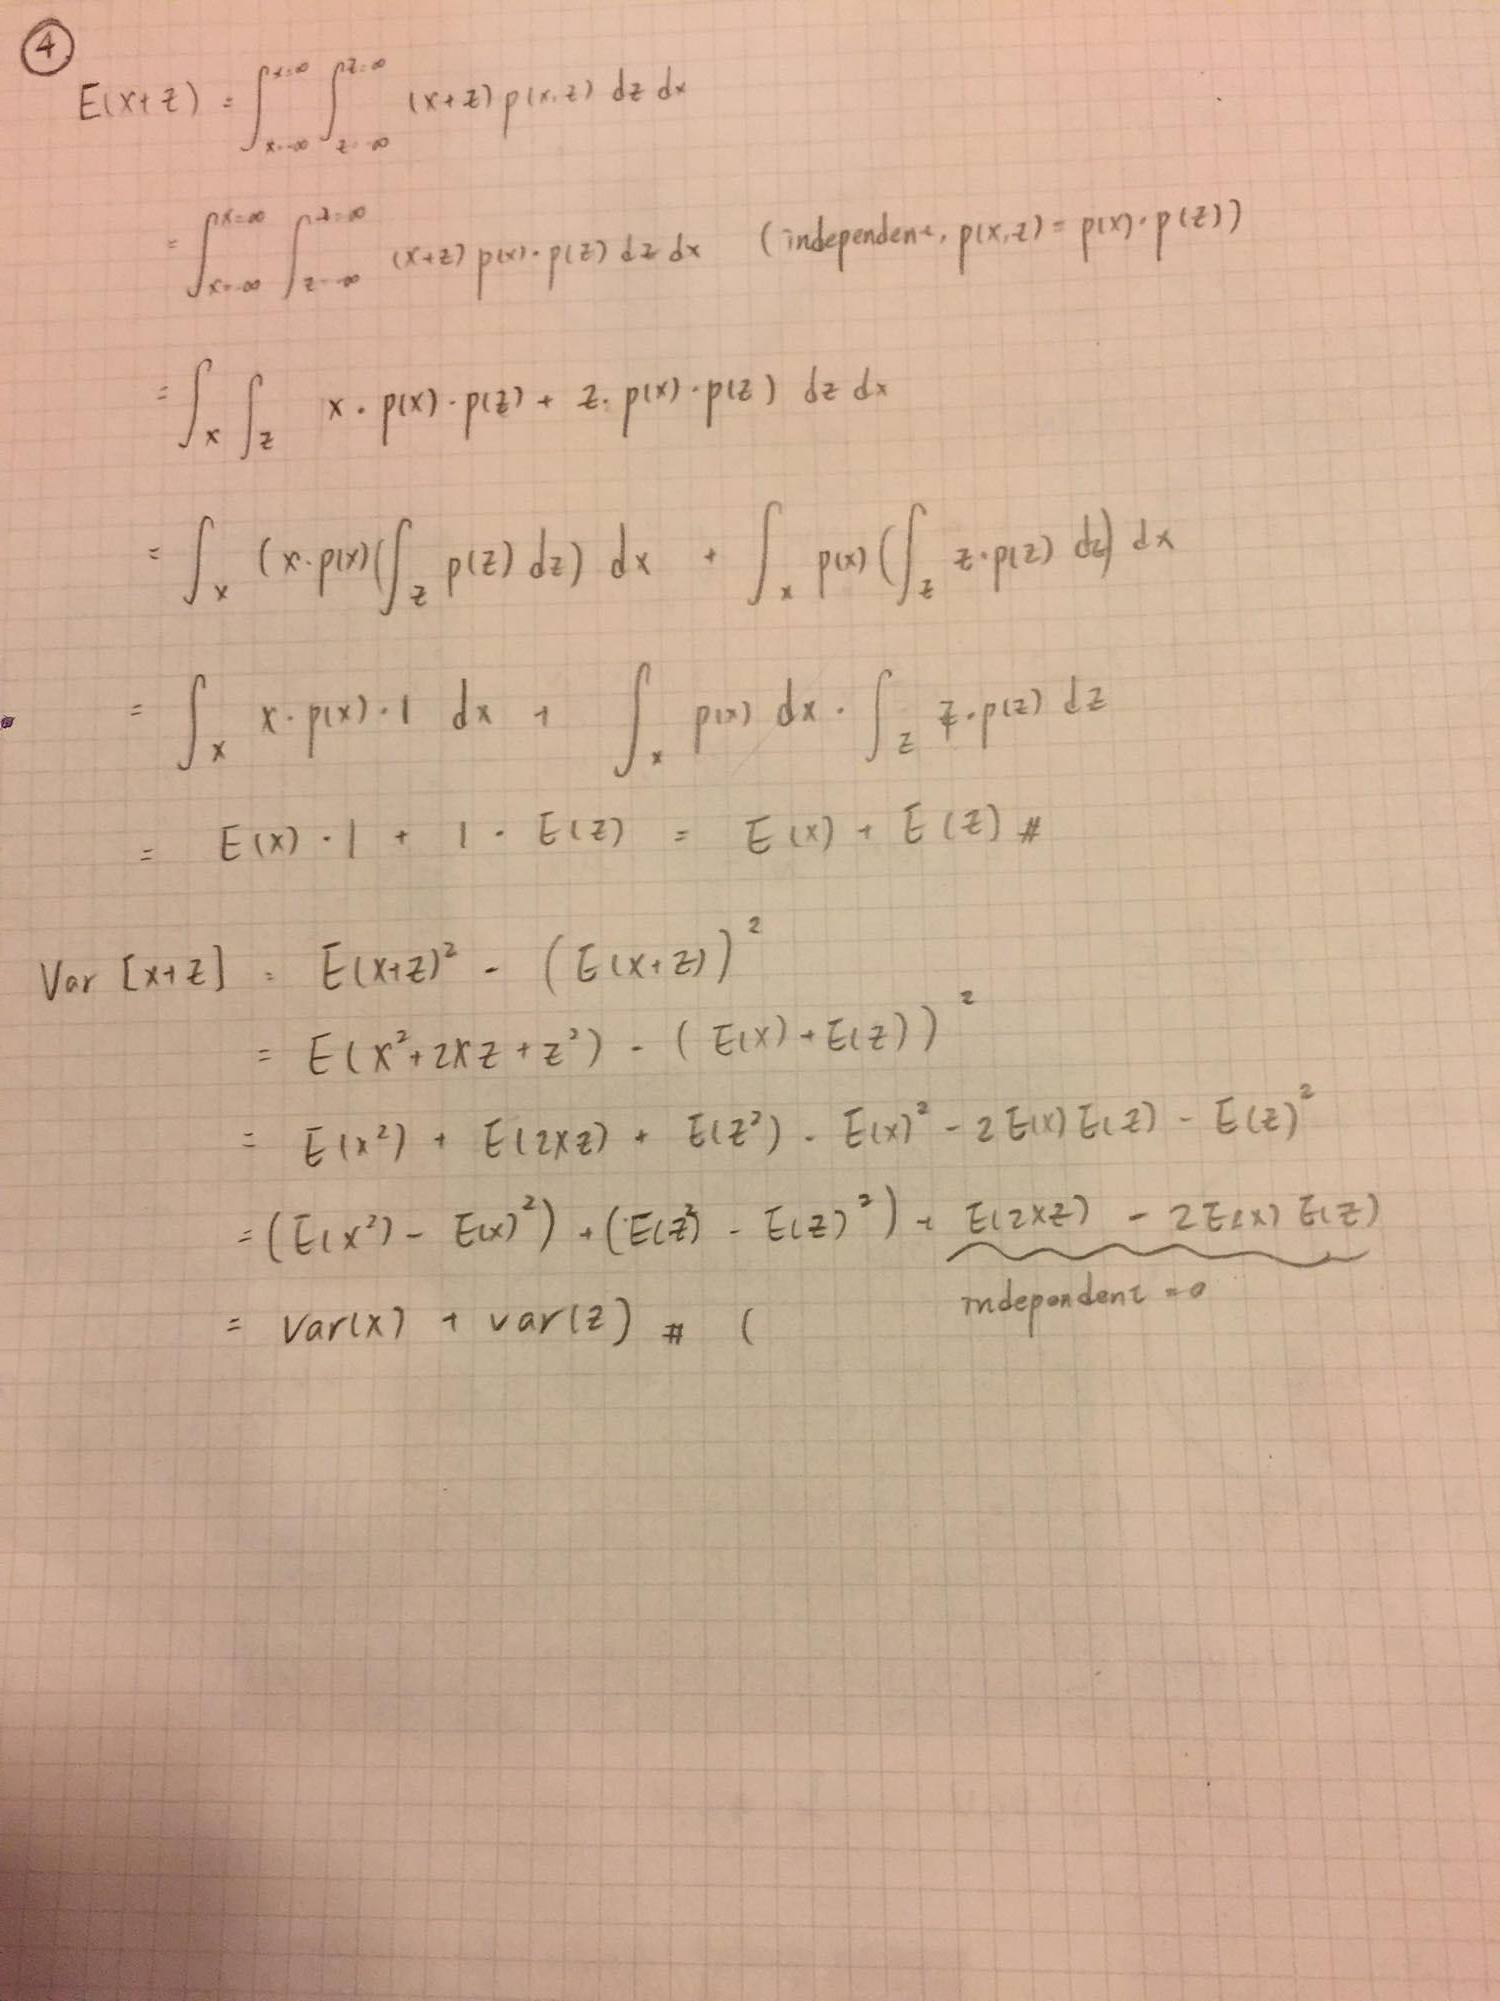 ④
E(x+z) = ∫_{x=-∞}^{x=∞} ∫_{z=-∞}^{z=∞} (x+z) p(x,z) dz dx
= ∫_{x=-∞}^{x=∞} ∫_{z=-∞}^{z=∞} (x+z) p(x)·p(z) dz dx (independent, p(x,z) = p(x)·p(z))
= ∫_x ∫_z x·p(x)·p(z) + z·p(x)·p(z) dz dx
= ∫_x (x·p(x)(∫_z p(z) dz) dx + ∫_x p(x) (∫_z z·p(z) dz) dx
= ∫_x x·p(x)·1 dx + ∫_x p(x) dx · ∫_z z·p(z) dz
= E(x)·1 + 1·E(z) = E(x) + E(z) #
Var [x+z] = E(x+z)² - (E(x+z))²
= E(x²+2xz+z²) - (E(x)+E(z))²
= E(x²) + E(2xz) + E(z²) - E(x)² - 2E(x)E(z) - E(z)²
= (E(x²) - E(x)²) + (E(z²) - E(z)²) + E(2xz) - 2E(x)E(z)
independent = 0
= Var(x) + var(z) # (